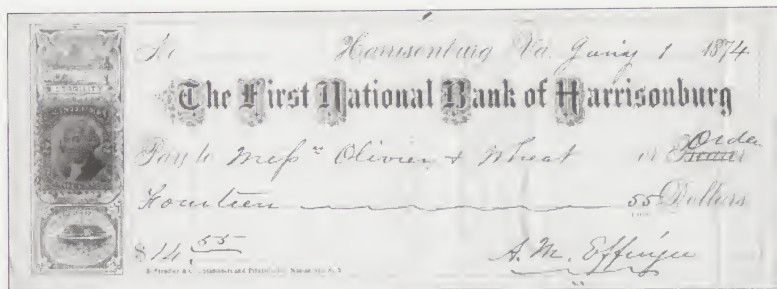 No Harrisonburg Va. Jany 1 1874
The First National Bank of Harrisonburg
Pay to Mess^rs Olivier & Wheat or Bearer Order
Fourteen 55/100 Dollars
$14.55 A. M. Effinger
STABILITY